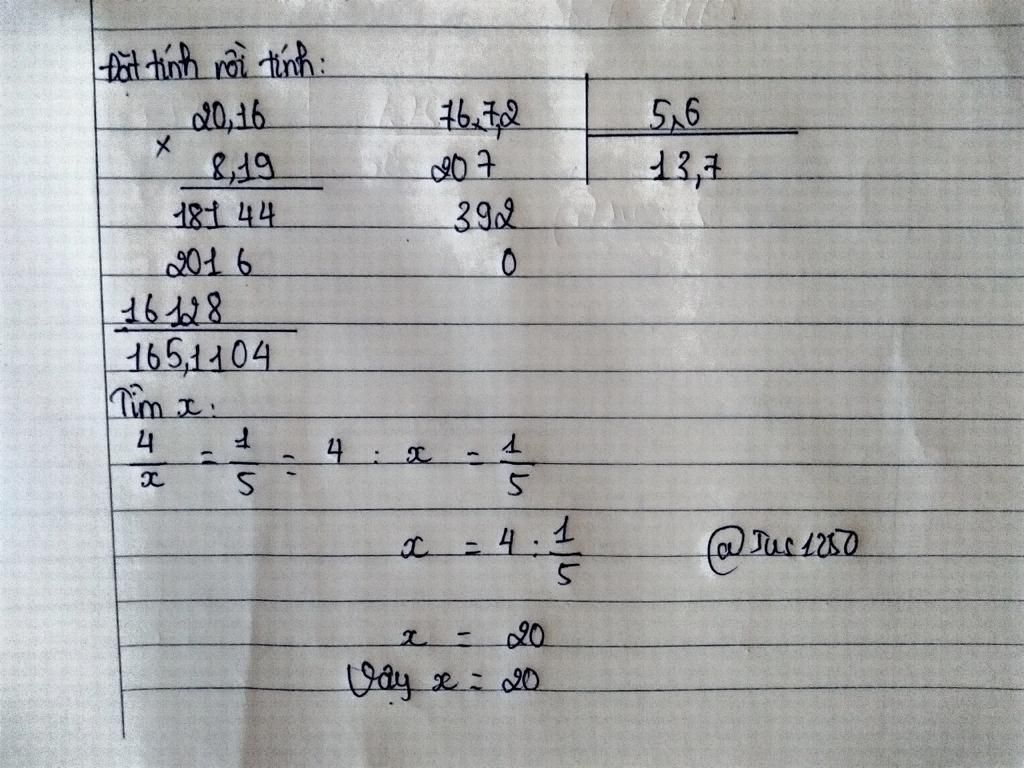 Đặt tính rồi tính:
20,16
×
8,19
18144
2016
16128
165,1104
76,7,2 5,6
207 13,7
392
0
Tìm x:
4/x = 1/5 = 4 : x = 1/5
x = 4 : 1/5
@Tuc1250
x = 20
Vậy x = 20